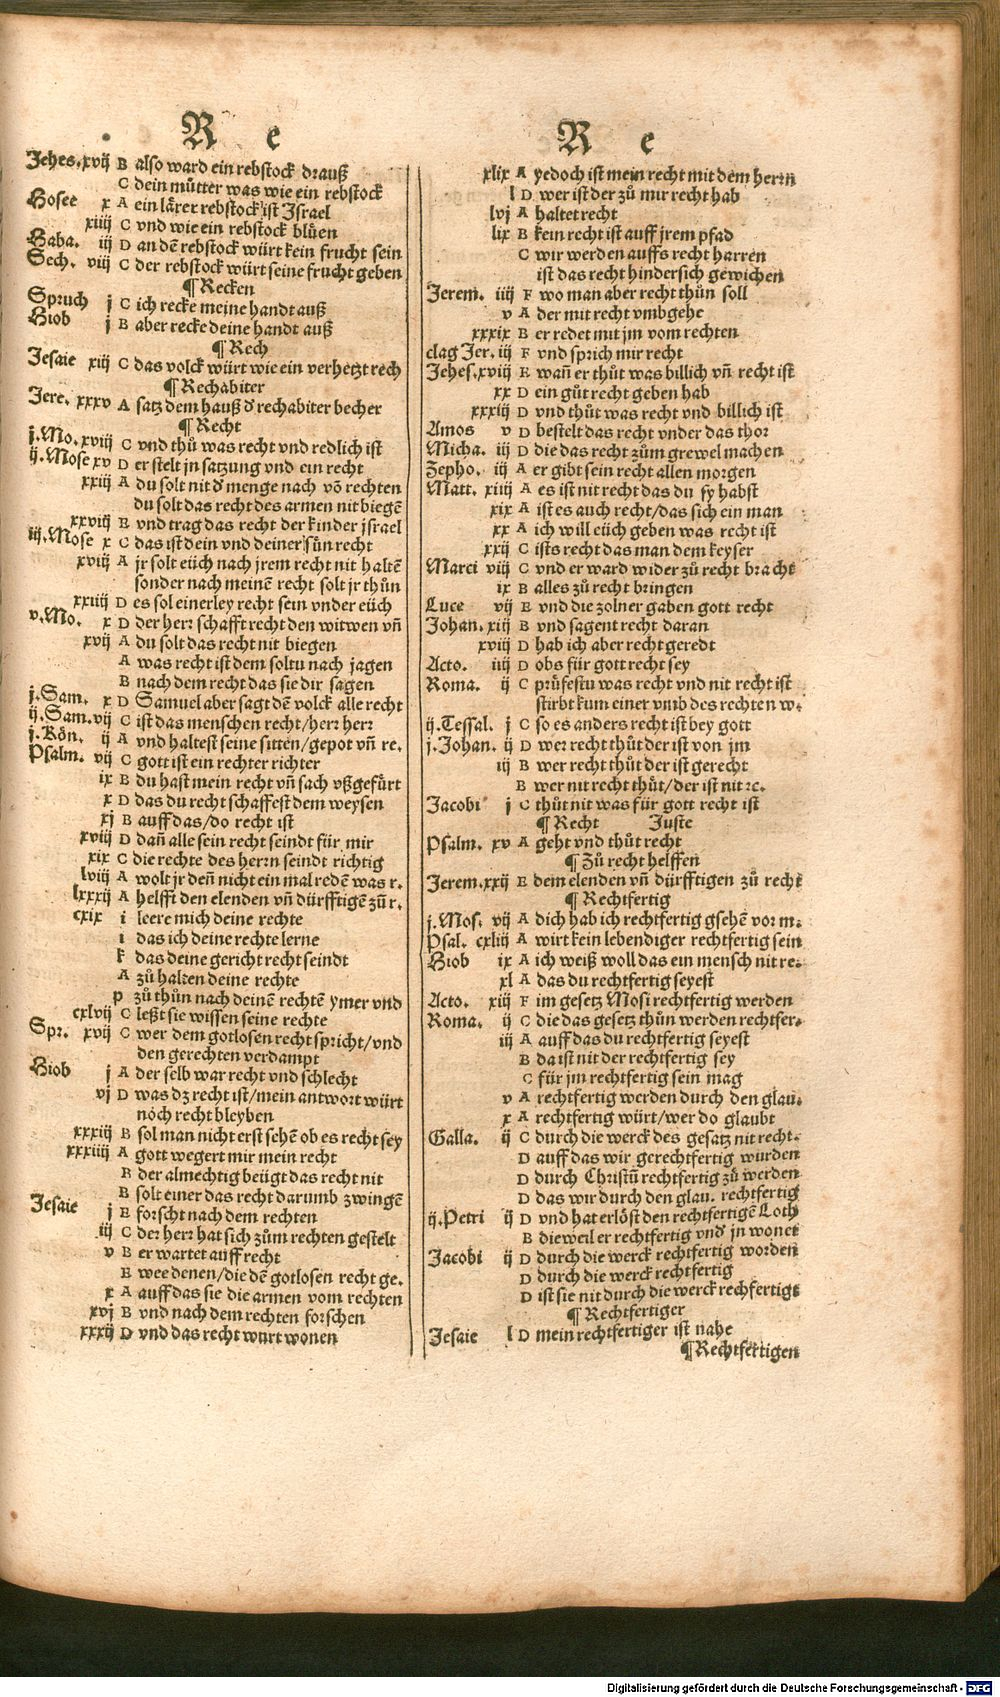 R e
Jehes. xvij B also ward ein rebstock drauß
C dein můtter was wie ein rebstock
Hosee x A ein lärer rebstock ist Israel
xiiij C vnd wie ein rebstock blůen
Haba. iij D an dē rebstock würt kein frucht sein
Sech. viij C der rebstock würt seine frucht geben
¶ Recken
Spruch j C ich recke meine handt auß
Hiob j B aber recke deine handt auß
¶ Rech
Jesaie xiij C das volck würt wie ein verhetzt rech
¶ Rechabiter
Jere. xxxv A satz dem hauß d' rechabiter becher
¶ Recht
j.Mo. xviij C vnd thů was recht vnd redlich ist
ij.Mose xv D er stelt jn satzung vnd ein recht
xxiij A du solt nit d' menge nach vō rechten
du solt das recht des armen nit biegē
xxviij E vnd trag das recht der kinder jsrael
iij.Mose x C das ist dein vnd deiner sün recht
xviij A jr solt eüch nach jrem recht nit haltē
sonder nach meinē recht solt jr thůn
xxiiij D es sol einerley recht sein vnder eüch
v.Mo. x D der herr schafft recht den witwen vn̄
xvij A du solt das recht nit biegen
A was recht ist dem soltu nach jagen
B nach dem recht das sie dir sagen
j.Sam. x D Samuel aber sagt dē volck alle recht
ij.Sam. vij C ist das menschen recht/herr herr
j.Kön. ij A vnd haltest seine sitten/gepot vn̄ re.
Psalm. vij C gott ist ein rechter richter
ix B du hast mein recht vn̄ sach vßgefürt
x D das du recht schaffest dem weysen
xj B auff das/do recht ist
xviij D dañ alle sein recht seindt für mir
xix C die rechte des herrn seindt richtig
lviij A wolt jr deñ nicht ein mal redē was r.
lxxxij A helfft den elenden vn̄ dürfftigē zů r.
cxix i leere mich deine rechte
i das ich deine rechte lerne
k das deine gericht recht seindt
A zů halten deine rechte
p zů thůn nach deinē rechtē ymer vnd
cxlvij C leßt sie wissen seine rechte
Spr. xvij C wer dem gotlosen recht spricht/vnd
den gerechten verdampt
Hiob j A der selb war recht vnd schlecht
vj D was dz recht ist/mein antwort würt
noch recht bleyben
xxxiij B sol man nicht erst sehē ob es recht sey
xxxiiij A gott wegert mir mein recht
B der almechtig beügt das recht nit
B solt einer das recht darumb zwingē
Jesaie j E forscht nach dem rechten
iij C der herr hat sich zům rechten gestelt
v B er wartet auff recht
E wee denen/die dē gotlosen recht ge.
x A auff das sie die armen vom rechten
xvj B vnd nach dem rechten forschen
xxxij D vnd das recht wurt wonen
R e
xlix A yedoch ist mein recht mit dem herrn
l D wer ist der zů mir recht hab
lvj A haltet recht
lix B kein recht ist auff jrem pfad
C wir werden auffs recht harren
ist das recht hindersich gewichen
Jerem. iiij F wo man aber recht thůn soll
v A der mit recht vmbgehe
xxxix B er redet mit jm vom rechten
clag Jer. iij F vnd sprich mir recht
Jehes. xviij E wañ er thůt was billich vn̄ recht ist
xx D ein gůt recht geben hab
xxxiij D vnd thůt was recht vnd billich ist
Amos v D bestelt das recht vnder das thor
Micha. iij D die das recht zům grewel machen
Zepho. iij A er gibt sein recht allen morgen
Matt. xiiij A es ist nit recht das du sy habst
xix A ist es auch recht/das sich ein man
xx A ich will eüch geben was recht ist
xxij C ists recht das man dem keyser
Marci viij C vnd er ward wider zů recht bracht
ix B alles zů recht bringen
Luce vij E vnd die zolner gaben gott recht
Johan. xiij B vnd sagent recht daran
xviij D hab ich aber recht geredt
Acto. iiij D obs für gott recht sey
Roma. ij C prüfestu was recht vnd nit recht ist
stirbt kum einer vmb des rechten w.
ij.Tessal. j C so es anders recht ist bey gott
j.Johan. ij D wer recht thůt der ist von jm
iij B wer recht thůt der ist gerecht
B wer nit recht thůt/der ist nit ꝛc.
Jacobi j C thůt nit was für gott recht ist
¶ Recht Juste
Psalm. xv A geht vnd thůt recht
¶ Zů recht helffen
Jerem. xxij E dem elenden vn̄ dürfftigen zů recht
¶ Rechtfertig
j.Mos. vij A dich hab ich rechtfertig gsehē vor m.
Psal. cxliij A wirt kein lebendiger rechtfertig sein
Hiob ix A ich weiß woll das ein mensch nit re.
xl A das du rechtfertig seyest
Acto. xiij F im gesetz Mosi rechtfertig werden
Roma. ij C die das gesetz thůn werden rechtfer.
iij A auff das du rechtfertig seyest
B da ist nit der rechtfertig sey
C für jm rechtfertig sein mag
v A rechtfertig werden durch den glau.
x A rechtfertig würt/wer do glaubt
Galla. ij C durch die werck des gesatz nit recht.
D auff das wir gerechtfertig wurden
D durch Christū rechtfertig zů werden
D das wir durch den glau. rechtfertig
ij.Petri ij D vnd hat erlößt den rechtfertigē Loth
B dieweil er rechtfertig vnd' jn wonet
Jacobi ij D durch die werck rechtfertig worden
D durch die werck rechtfertig
D ist sie nit durch die werck rechfertigt
¶ Rechtfertiger
Jesaie l D mein rechtfertiger ist nahe
¶ Rechtfertigen
Digitalisierung gefördert durch die Deutsche Forschungsgemeinschaft - DFG